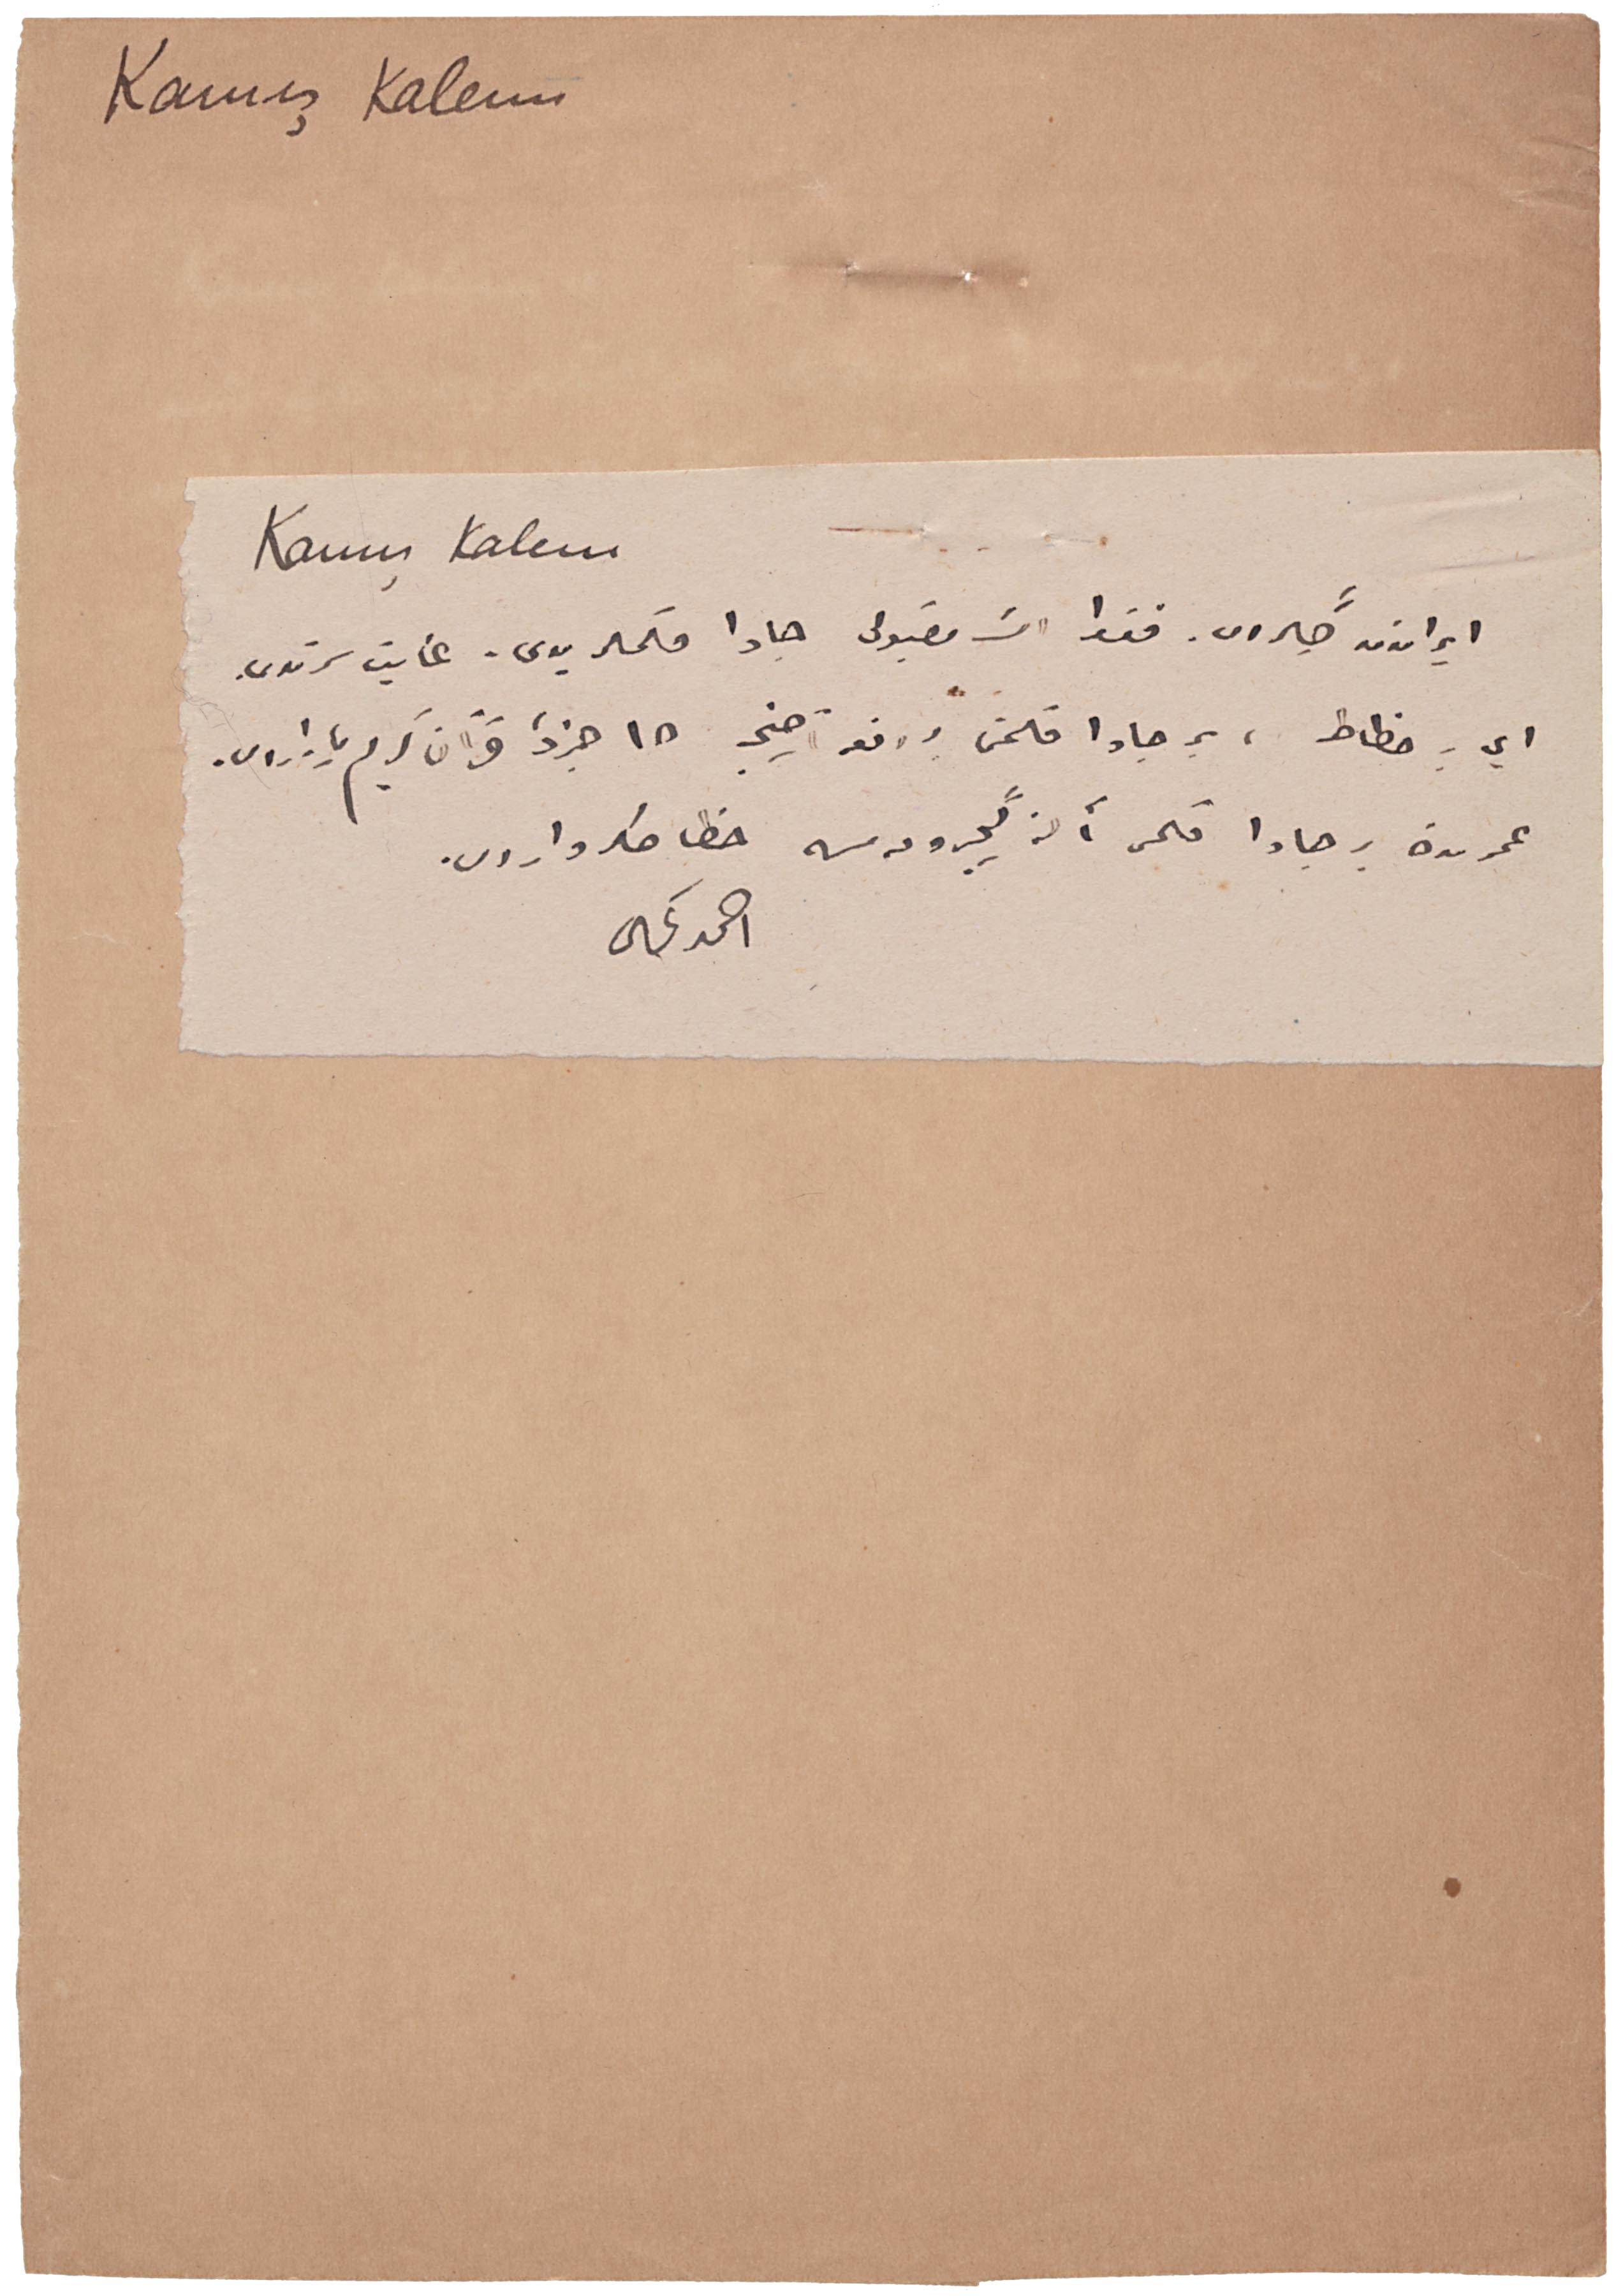 Kamış Kalem
Kamış Kalem
ایراندن گلیردی. فقط اڭ مقبولی جاوا قلملریدی. غایت سرتدی.
ایی بر خطاط، بر جاوا قلمنی بر دفعه آچنجه ١٥ جزؤ قرآن كریم یازاردی.
عمرنده بر جاوا قلمی أله گچیرومه‌مش خطاطلر واردی.
احمد كمال